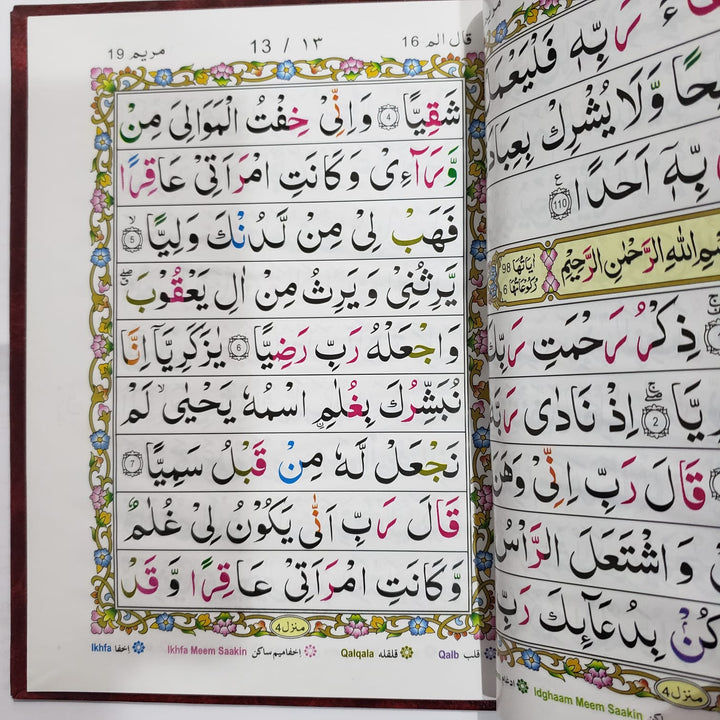 رَبِّهٖ فَلْيَعْمَـ
وَّلَا يُشْرِكْ بِعِبَادَ
رَبِّهٖ اَحَدًا ۝110
بِسْمِ اللّٰهِ الرَّحْمٰنِ الرَّحِيْمِ
اٰيَاتُهَا 98
رُكُوْعَاتُهَا 6
ذِكْرُ رَحْمَتِ رَبِّكَ
2 اِذْ نَادٰى
قَالَ رَبِّ اِنِّىْ وَهَنَ
وَاشْتَعَلَ الرَّاْسُ
بِدُعَآئِكَ رَبِّ
منزل 4
Idghaam Meem Saakin
قال الم 16
13 / ١٣
مريم 19
شَقِيًّا 4 وَاِنِّىْ خِفْتُ الْمَوَالِىَ مِنْ
وَّرَآءِىْ وَكَانَتِ امْرَاَتِىْ عَاقِرًا
فَهَبْ لِىْ مِنْ لَّدُنْكَ وَلِيًّا 5
يَّرِثُنِىْ وَيَرِثُ مِنْ اٰلِ يَعْقُوْبَ
وَاجْعَلْهُ رَبِّ رَضِيًّا 6 يٰزَكَرِيَّآ اِنَّا
نُبَشِّرُكَ بِغُلٰمِ اسْمُهٗ يَحْيٰى لَمْ
نَجْعَلْ لَّهٗ مِنْ قَبْلُ سَمِيًّا 7
قَالَ رَبِّ اَنّٰى يَكُوْنُ لِىْ غُلٰمٌ
وَّكَانَتِ امْرَاَتِىْ عَاقِرًا وَّقَدْ
منزل 4
Ikhfa اخفا Ikhfa Meem Saakin اخفا میم ساکن Qalqala قلقله Qalb قلب